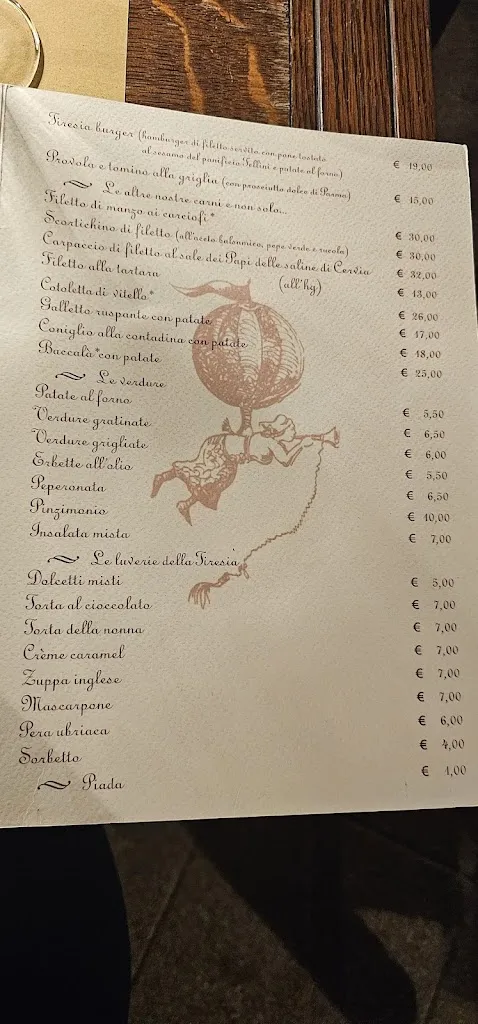 Tiresia burger (hamburger di filetto servito con pane tostato
al sesamo del panificio Fellini e patate al forno) € 19,00
Provola e tomino alla griglia (con prosciutto dolce di Parma) € 15,00
Le altre nostre carni e non solo...
Filetto di manzo ai carciofi* € 30,00
Scortichino di filetto (all'aceto balsamico, pepe verde e rucola) € 30,00
Carpaccio di filetto al sale dei Papi delle saline di Cervia € 32,00
Filetto alla tartara (all'hg) € 13,00
Cotoletta di vitello* € 26,00
Galletto ruspante con patate € 17,00
Coniglio alla contadina con patate € 18,00
Baccalà*con patate € 25,00
Le verdure
Patate al forno € 5,50
Verdure gratinate € 6,50
Verdure grigliate € 6,00
Erbette all'olio € 5,50
Peperonata € 6,50
Pinzimonio € 10,00
Insalata mista € 7,00
Le luverie della Tiresia
Dolcetti misti € 5,00
Torta al cioccolato € 7,00
Torta della nonna € 7,00
Crème caramel € 7,00
Zuppa inglese € 7,00
Mascarpone € 7,00
Pera ubriaca € 6,00
Sorbetto € 4,00
Piada € 1,00